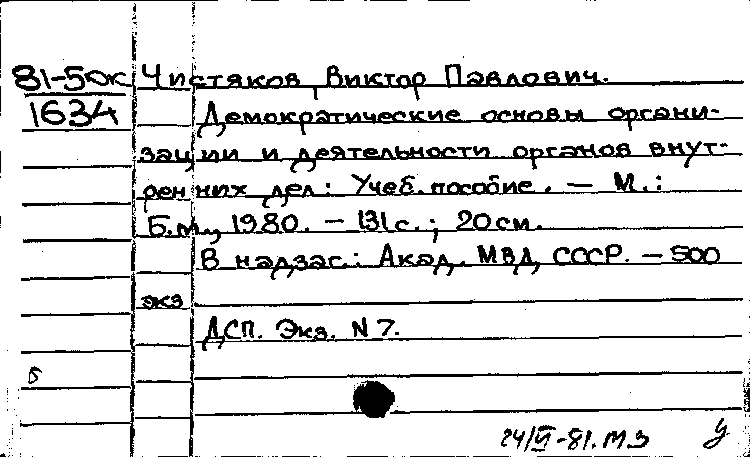 81-50к Чистяков, Виктор Павлович.
1634 Демократические основы органи-
зации и деятельности органов внут-
ренних дел: Учеб. пособие. — М.:
Б.м., 1980. — 131с.; 20см.
В надзаг.: Акад. МВД СССР. — 500
экз
ДСП. Экз. N 7.
Б
24/VI-81. М.З
У